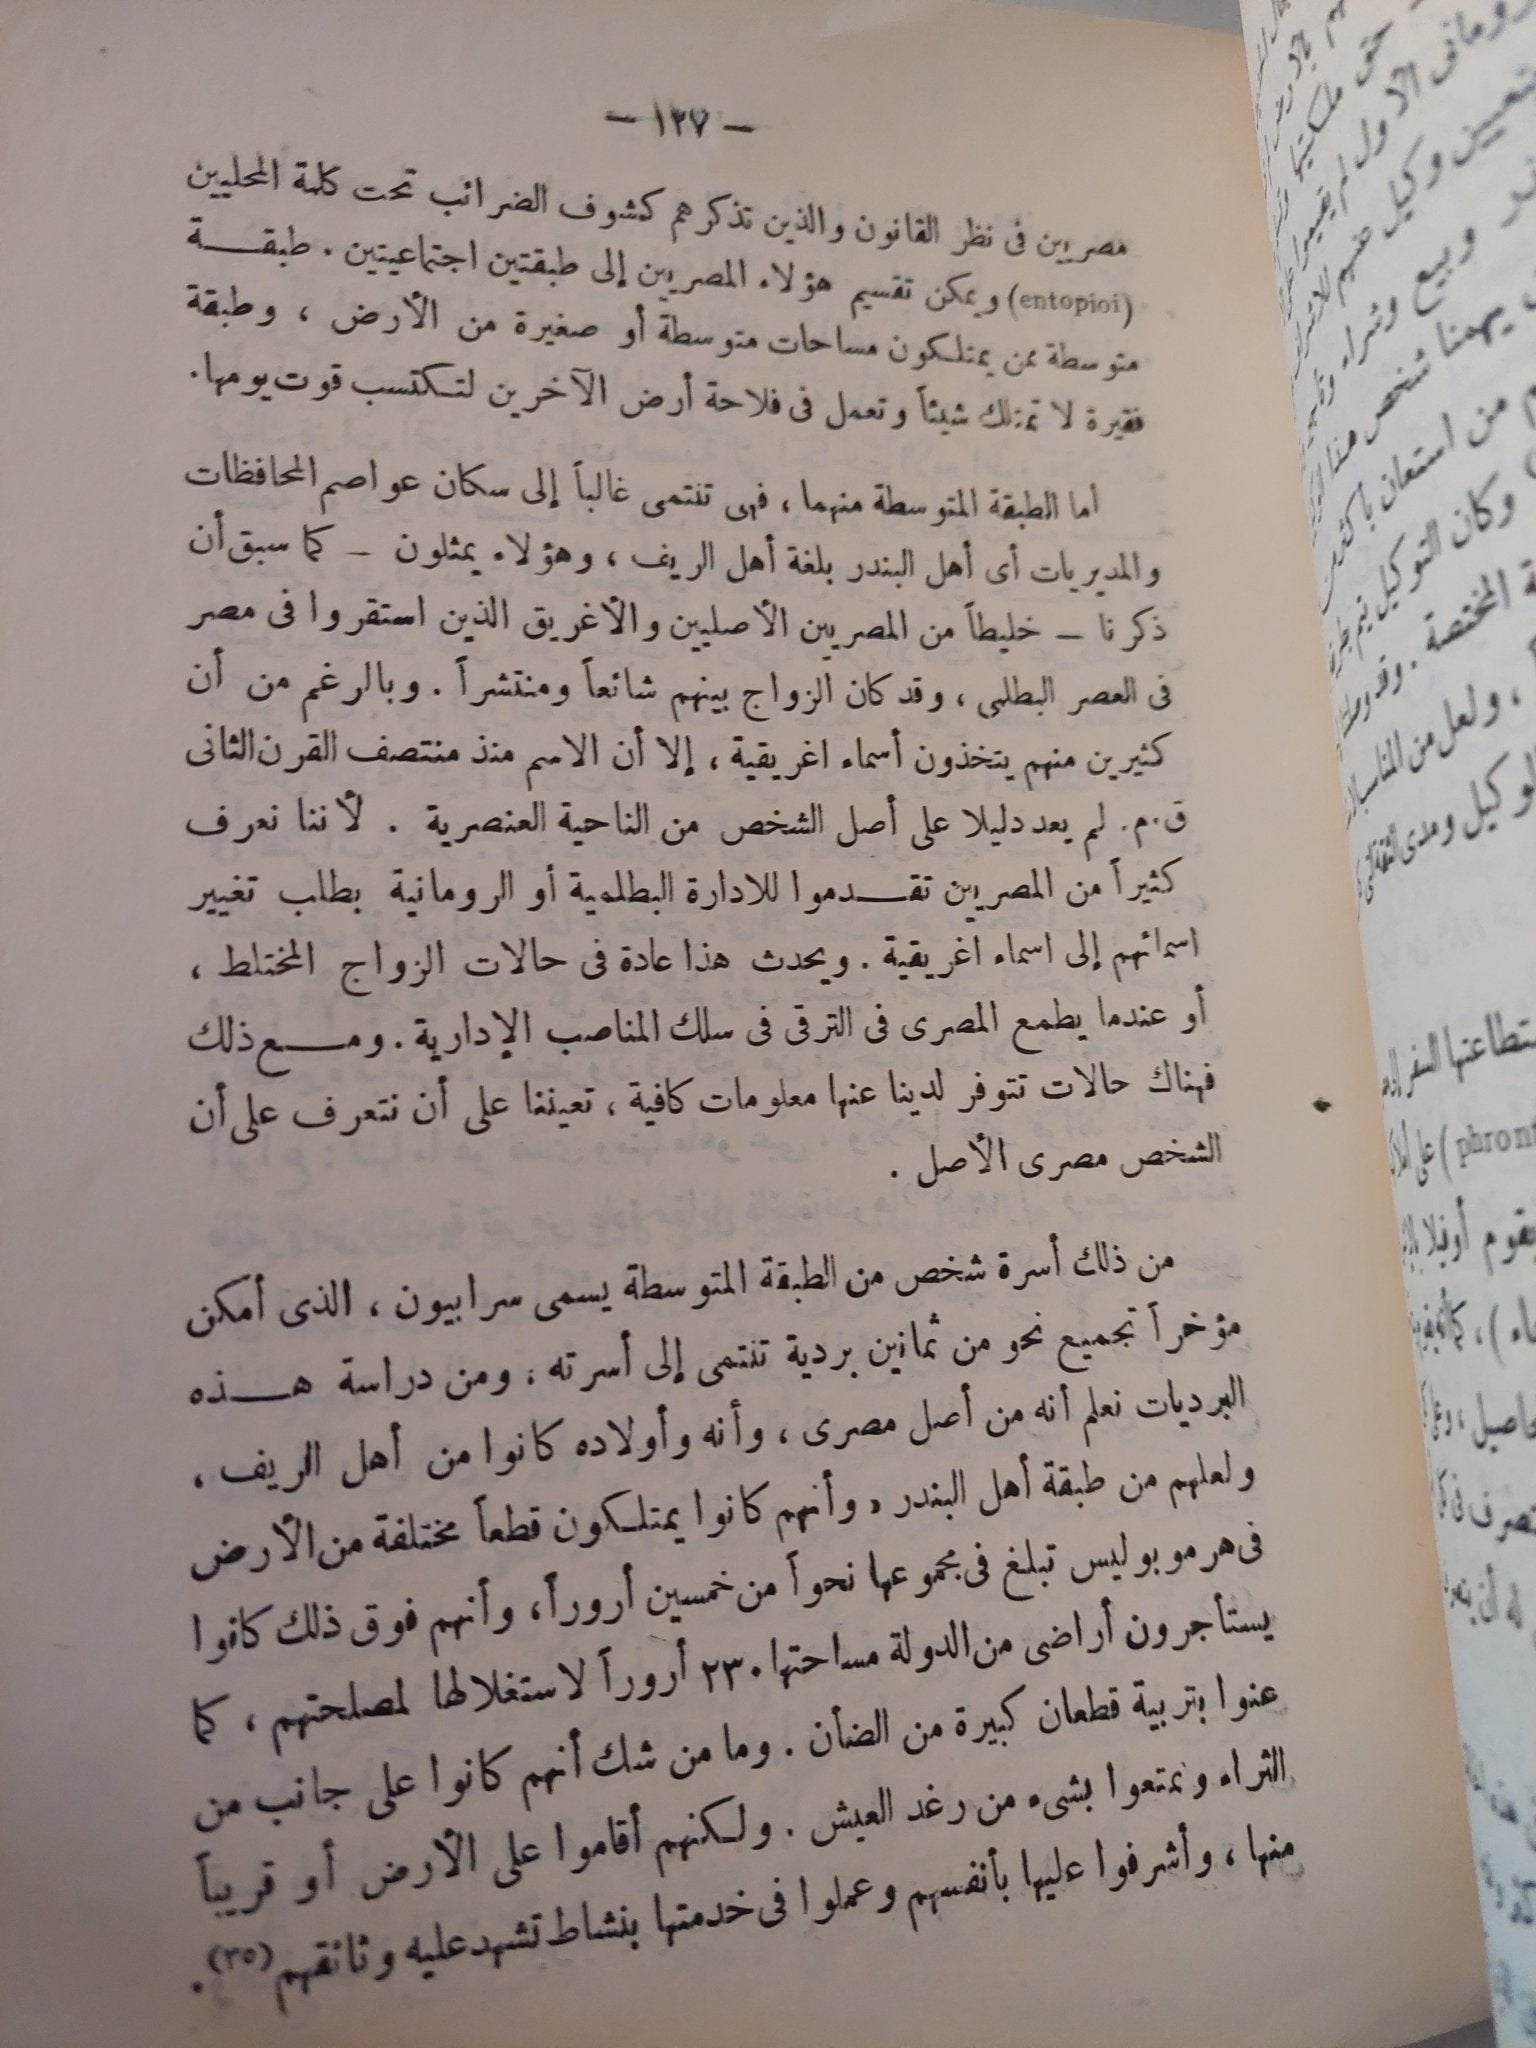 — ١٢٧ —
مصريين فى نظر القانون والذين تذكرهم كشوف الضرائب تحت كلمة المحليين
(entopioi) ويمكن تقسيم هؤلاء المصريين إلى طبقتين اجتماعيتين . طبقة
متوسطة ممن يمتلكون مساحات متوسطة أو صغيرة من الأرض ، وطبقة
فقيرة لا تمتلك شيئاً وتعمل فى فلاحة أرض الآخرين لتكتسب قوت يومها.
أما الطبقة المتوسطة منهما ، فهى تنتمى غالباً إلى سكان عواصم المحافظات
والمديريات أى أهل البندر بلغة أهل الريف ، وهؤلاء يمثلون — كما سبق أن
ذكرنا — خليطاً من المصريين الأصليين والأغريق الذين استقروا فى مصر
فى العصر البطلمى ، وقد كان الزواج بينهم شائعاً ومنتشراً . وبالرغم من أن
كثيرين منهم يتخذون أسماء اغريقية ، إلا أن الاسم منذ منتصف القرن الثانى
ق.م. لم يعد دليلا على أصل الشخص من الناحية العنصرية . لأننا نعرف
كثيراً من المصريين تقدموا للادارة البطلمية أو الرومانية بطلب تغيير
اسمائهم إلى اسماء اغريقية . ويحدث هذا عادة فى حالات الزواج المختلط ،
أو عندما يطمع المصرى فى الترقى فى سلك المناصب الإدارية . ومع ذلك
فهناك حالات تتوفر لدينا عنها معلومات كافية ، تعيننا على أن نتعرف على أن
الشخص مصرى الأصل .
من ذلك أسرة شخص من الطبقة المتوسطة يسمى سرابيون ، الذى أمكن
مؤخراً تجميع نحو من ثمانين بردية تنتمى إلى أسرته ، ومن دراسة هذه
البرديات نعلم أنه من أصل مصرى ، وأنه وأولاده كانوا من أهل الريف ،
ولعلهم من طبقة أهل البندر ، وأنهم كانوا يمتلكون قطعاً مختلفة من الأرض
فى هرموبوليس تبلغ فى مجموعها نحواً من خمسين أروراً ، وأنهم فوق ذلك كانوا
يستأجرون أراضى من الدولة مساحتها ٢٣٠ أروراً لاستغلالها لمصلحتهم ، كما
عنوا بتربية قطعان كبيرة من الضأن . وما من شك أنهم كانوا على جانب من
الثراء وتمتعوا بشىء من رغد العيش . ولكنهم أقاموا على الأرض أو قريباً
منها ، وأشرفوا عليها بأنفسهم وعملوا فى خدمتها بنشاط تشهد عليه وثائقهم (٣٥) .